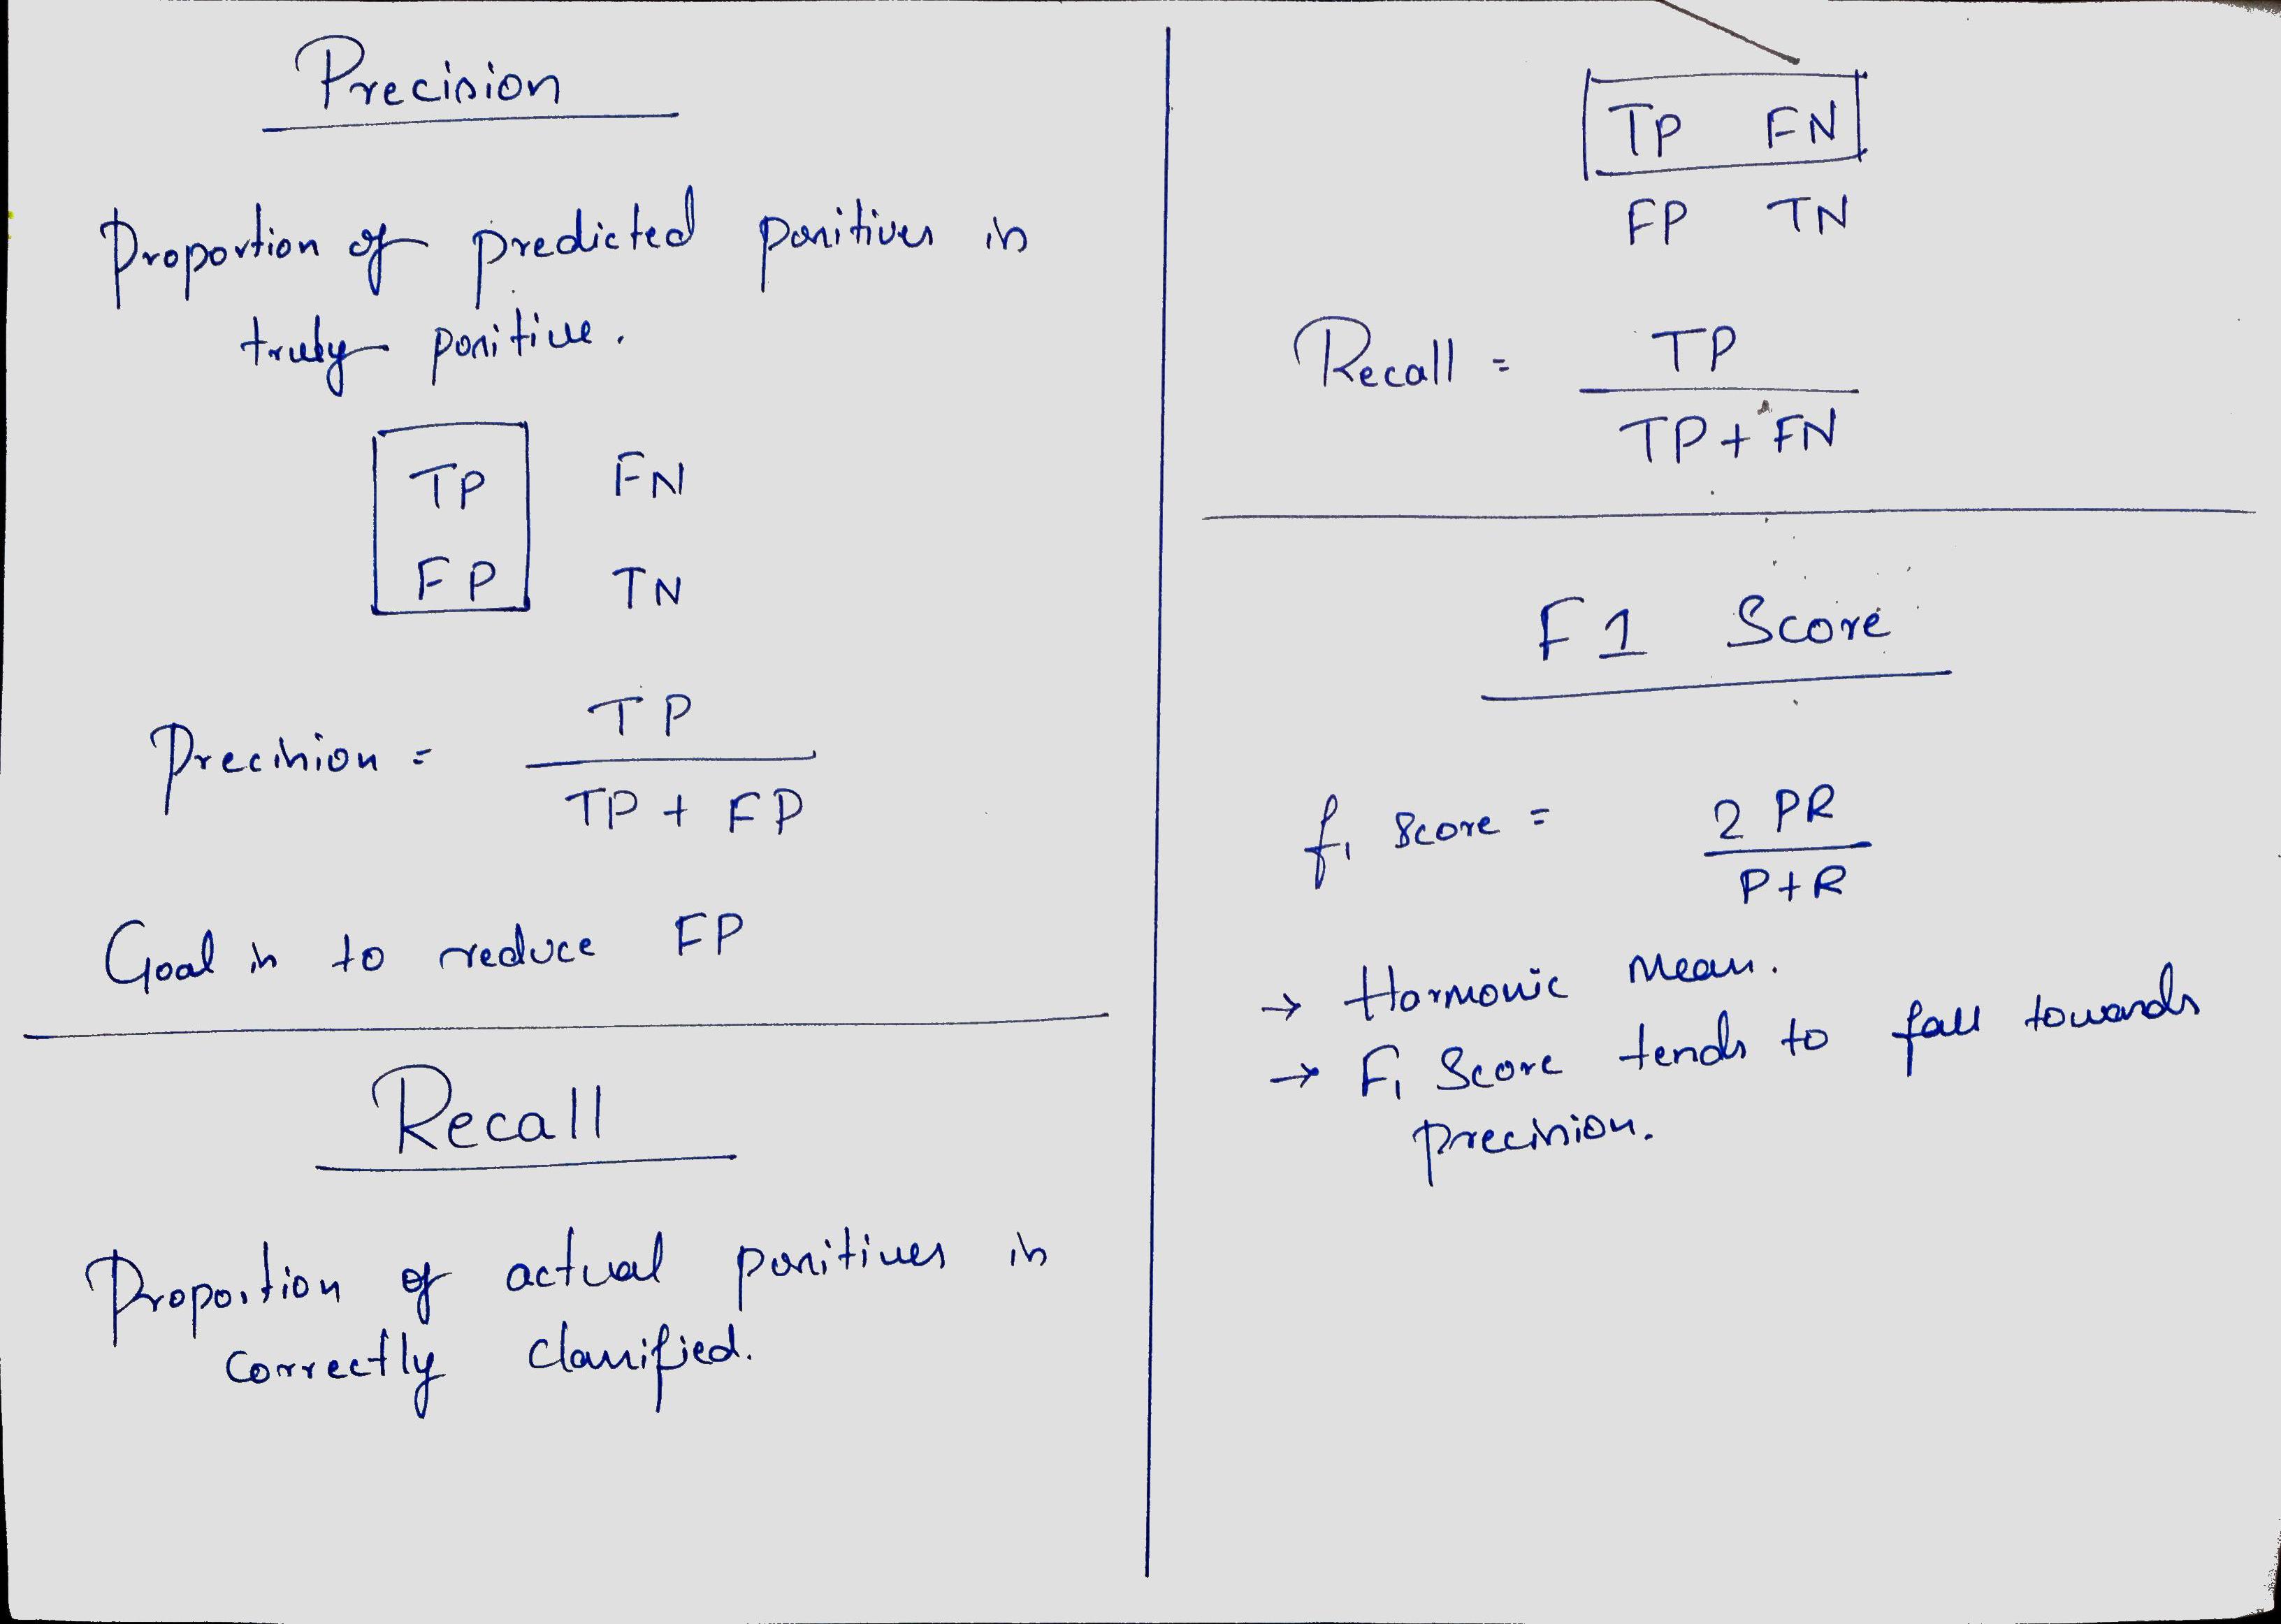 Precision
Proportion of predicted positives is
truly positive.
TP FN
FP TN
Precision =
TP
TP + FP
Goal is to reduce FP
Recall
Proportion of actual positives is
correctly classified.
TP FN
FP TN
Recall =
TP
TP + FN
F1 Score
f1 score =
2 PR
P+R
→ Harmonic Mean.
→ F1 Score tends to fall towards
precision.